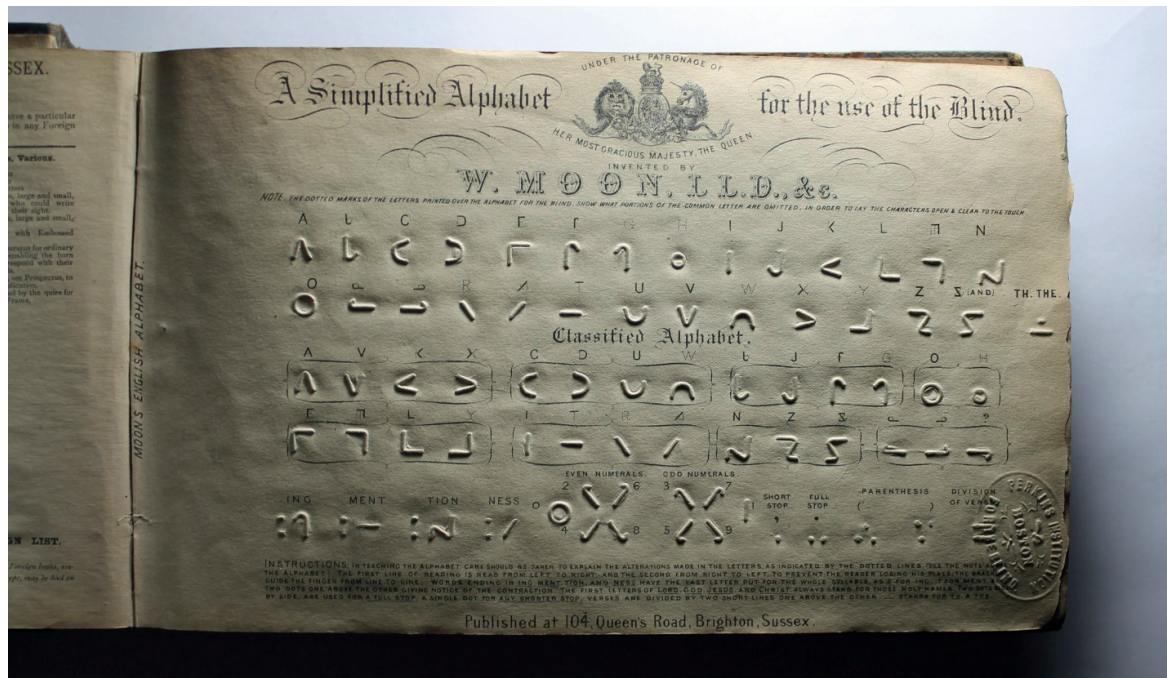 SSEX.
in any Foreign
Various.
large and small,
who could write
their sight.
large and small,
with Embossed
FOREIGN LIST.
MOON'S ENGLISH ALPHABET.
UNDER THE PATRONAGE OF
A Simplified Alphabet for the use of the Blind.
HER MOST GRACIOUS MAJESTY, THE QUEEN
INVENTED BY
W. MOON, LL.D., &c.
NOTE. THE DOTTED MARKS OF THE LETTERS PRINTED OVER THE ALPHABET FOR THE BLIND, SHOW WHAT PORTIONS OF THE COMMON LETTER ARE OMITTED, IN ORDER TO LAY THE CHARACTERS OPEN & CLEAR TO THE TOUCH
A B C D E F G H I J K L M N
O P Q R S T U V W X Y Z & (AND) TH. THE.
Classified Alphabet.
A V K X C D U W B J F G O H
E M L Y I T R S N Z & P Q ?
EVEN NUMERALS. ODD NUMERALS.
ING MENT TION NESS 0 2 6 4 8 3 7 5 9 1 SHORT STOP FULL STOP PARENTHESIS ( ) DIVISION OF VERSE
INSTRUCTIONS, IN TEACHING THE ALPHABET CARE SHOULD BE TAKEN TO EXPLAIN THE ALTERATIONS MADE IN THE LETTERS, AS INDICATED BY THE DOTTED LINES (SEE THE NOTE ABOVE
THE ALPHABET) THE FIRST LINE OF READING IS READ FROM LEFT TO RIGHT, AND THE SECOND FROM RIGHT TO LEFT, TO PREVENT THE READER LOSING HIS PLACE, THE
GUIDE THE FINGER FROM LINE TO LINE. WORDS ENDING IN ING MENT TION, AND NESS HAVE THE LAST LETTER PUT FOR THE WHOLE SYLLABLE, AS G FOR ING, T FOR MENT, &
TWO DOTS ONE ABOVE THE OTHER GIVING NOTICE OF THE CONTRACTION. THE FIRST LETTERS OF LORD, GOD, JESUS, AND CHRIST ALWAYS STAND FOR THOSE HOLY NAMES. TWO DOTS
BY SIDE, ARE USED FOR A FULL STOP, A SINGLE DOT FOR ANY SHORTER STOP, VERSES ARE DIVIDED BY TWO SHORT LINES ONE ABOVE THE OTHER
Published at 104, Queen's Road, Brighton, Sussex.
PERKINS INSTITUTION
BOSTON